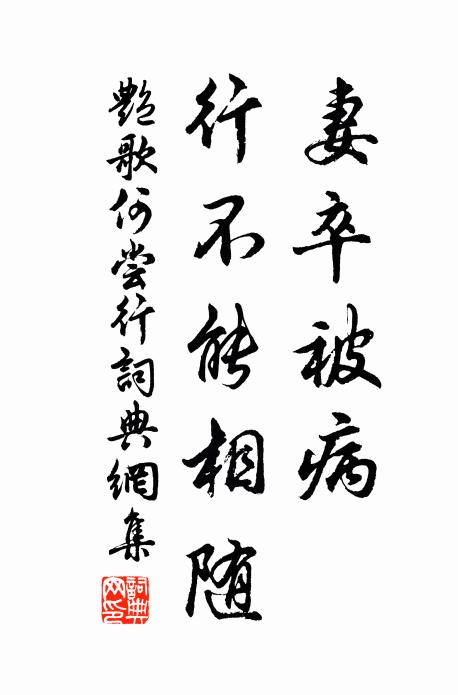 妻卒被病
行不能相随
艷歌何嘗行詞典網集
詞典網印